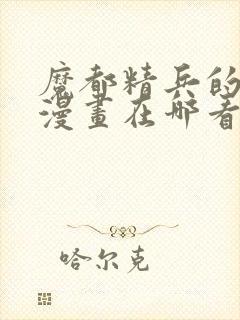 魔都精兵的
漫畫在哪看
哈尔克